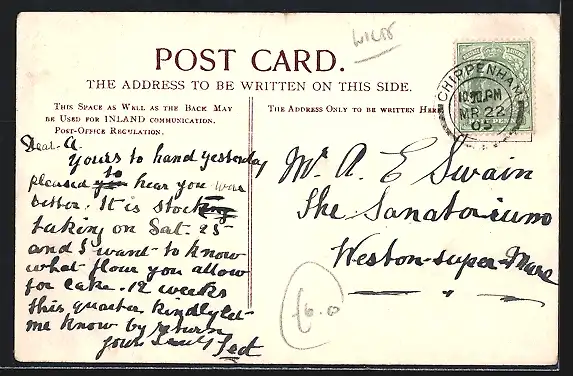 Wilts
POST CARD.
THE ADDRESS TO BE WRITTEN ON THIS SIDE.
THIS SPACE AS WELL AS THE BACK MAY
BE USED FOR INLAND COMMUNICATION.
POST-OFFICE REGULATION.
THE ADDRESS ONLY TO BE WRITTEN HERE
CHIPPENHAM
PM
MR 22
05
Dear A.
Yours to hand yesterday
pleased to hear you was
better. It is stock
taking on Sat 25
and I want to know
what flour you allow
for cake. 12 weeks
this quarter kindly let
me know by return
Yours Ted
Mr A. E Swain
The Sanatorium
Weston-super-Mare
£6.0